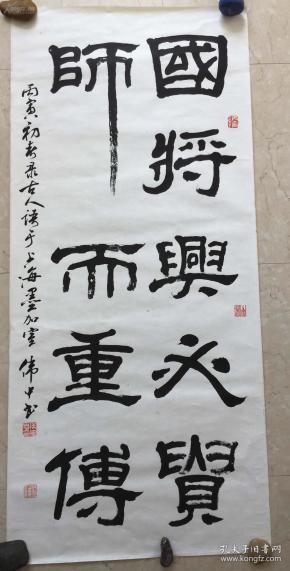 國將興必貴
師而重傅
丙寅初春录古人语于上海墨加室 伟中书
孔夫子旧书网